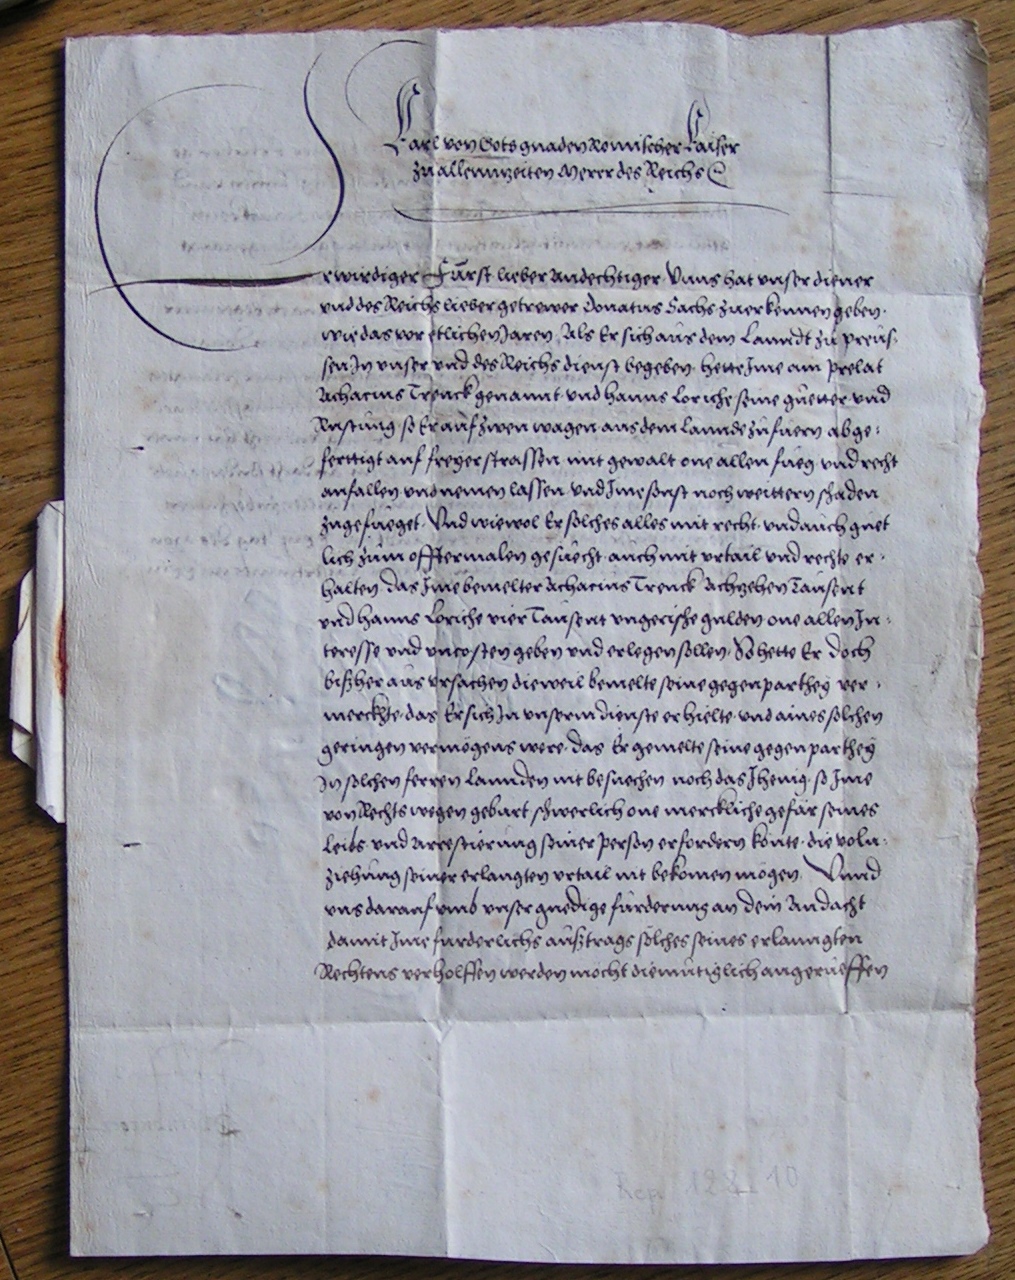 Carl von Gots gnaden Romischer Kaiser
zu allenntzeiten Merer des Reichs
Erwirdiger Fürst lieber Andechtiger. Unns hat unser diener
und des Reichs lieber getrewer Donatius Sachs zuerkennen geben.
wie das vor etlichen Jaren, Als Er sich aus dem Lanndt zu Preus-
sen In unser und des Reichs dienst begeben. hette Ime ain Prelat
Achacius Trenck genannt und Hanns Loriche seine guetter und
Rustung so Er auf zwen wagen aus dem Lannde zufuern abge-
ferttigt auf freyer strassen mit gewalt one allen fueg und recht
anfallen und nemen lassen und Ime sonst noch weittern schaden
zugefueget. Und wiewol Er solches alles mit recht und auch guet
lich zum offtermalen gesuecht auch mit urtail und rechte er-
halten das Ime bemelter Achacius Trenck Achzehen Tausent
und Hanns Loriche vier Tausent ungerische gulden one allen In-
teresse und uncosten geben und erlegen sollen. So hette Er doch
bißher aus ursachen dieweil bemelte seine gegenparthey ver-
merckhte. das Er sich In unserm dienste erhielte und aines solchen
geringen vermögens were. das Er gemelte seine gegenparthey
In solchen ferren Lannden nit besuechen noch das Jhenig so Ime
von Rechts wegen geburt schwerlich one merckliche gefar seines
Leibs und Arrestierung seiner person erfordern konte. die voln-
ziehung seiner erlangten urtail nit bekomen mögen. Unnd
uns darauf umb unser gnedige fürderung an dein Andacht
damit Ime furderlichs außtrags solches seines erlanngten
Rechtens verholffen werden mocht diemütiglich angerueffen
Rep. 122 10